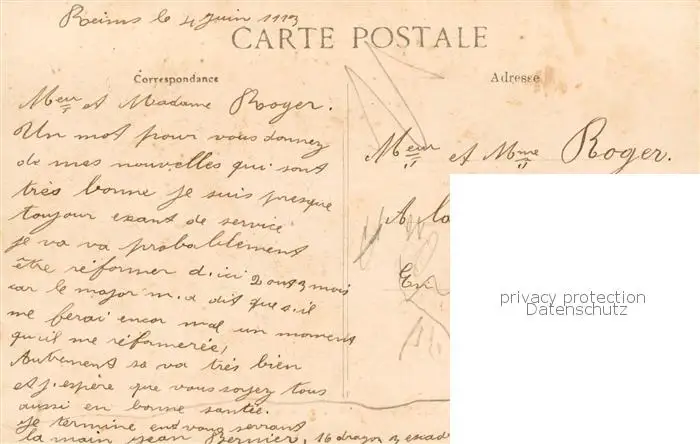 Reims le 4 juin 1113
CARTE POSTALE
Correspondance
Adresse
Meur et Madame Roger.
Un mot pour vous donnez
de mes nouvelles qui sont
très bonne je suis presque
toujour exant de service
je va va probablement
être réformer d'ici 2 out 3 mois
car le major m.a dit que s.il
me ferai encor mal un moment
qu'il me réformerée,
Autrement sa va très bien
et j.espère que vous soyez tous
aussi en bonne santée.
je termine end vous serrant
la main jean Bernier, 16 dragon 3 escad
Meur et Mme Roger.
A la
En
privacy protection
Datenschutz